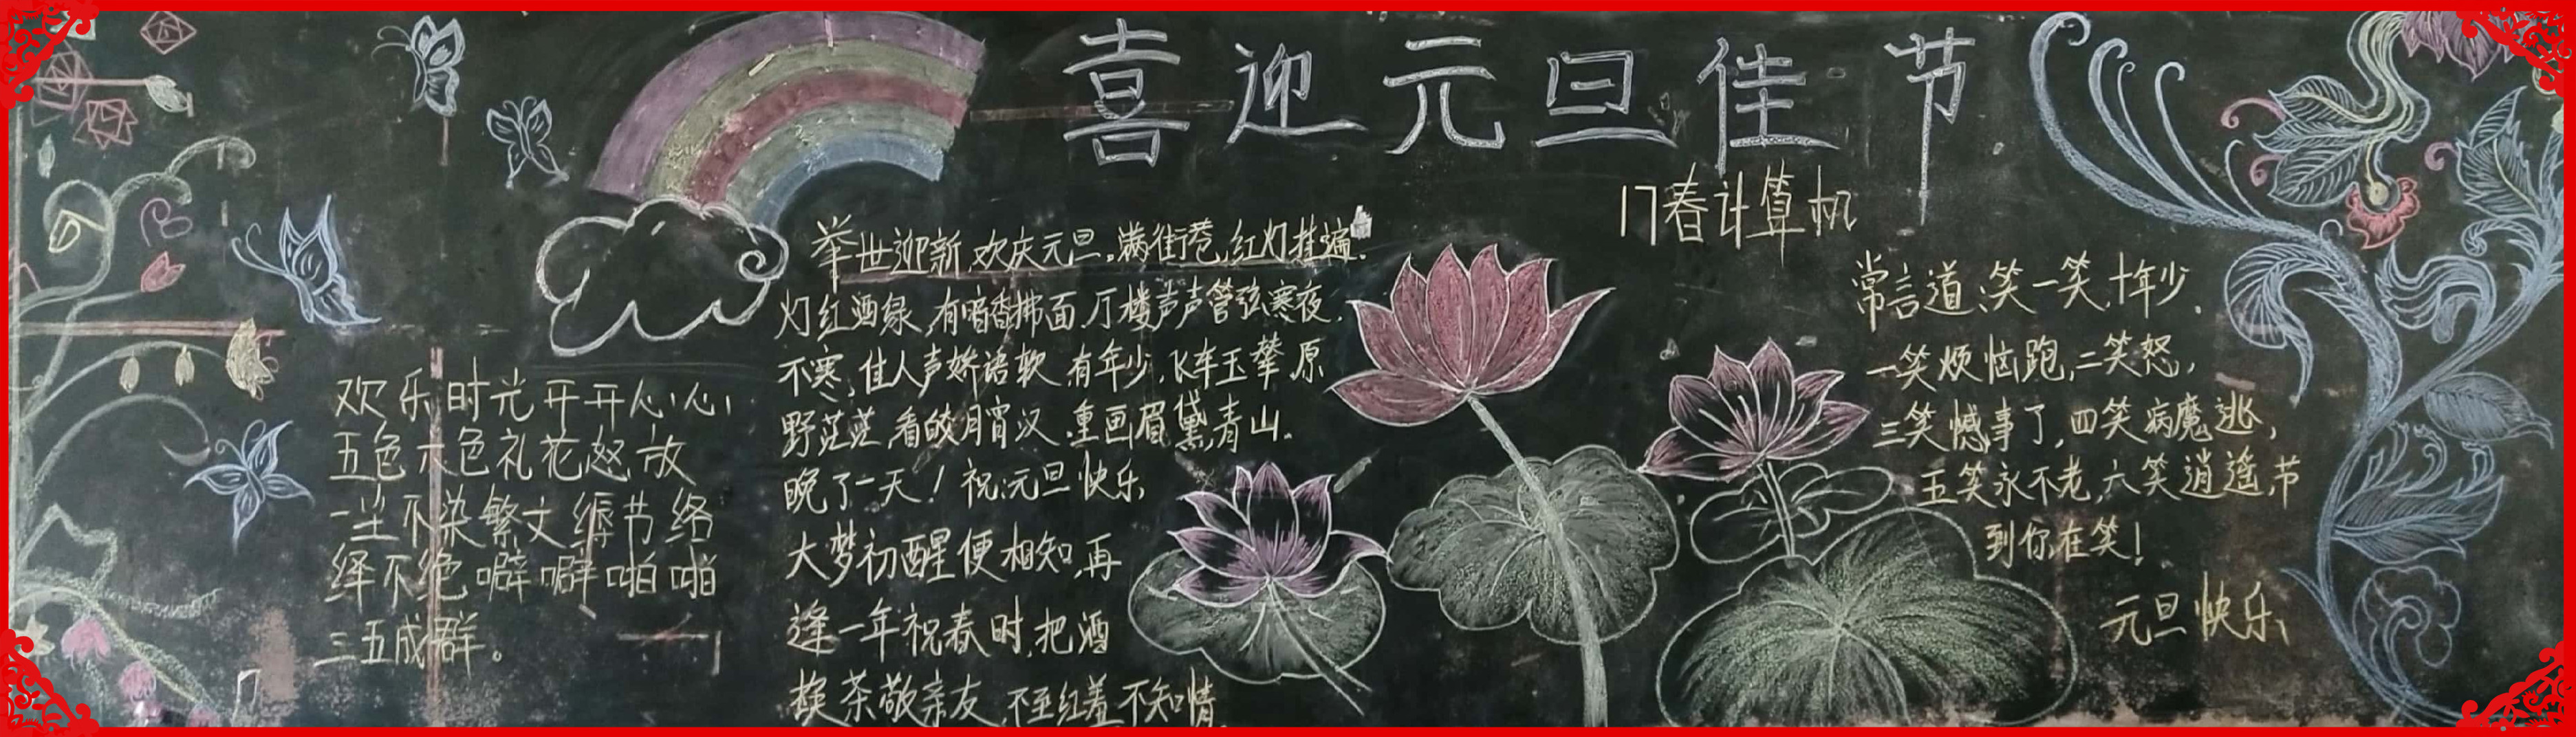 喜迎元旦佳节
17春计算机
欢乐时光开开心心
五色六色礼花怒放
一尘不染繁文缛节络
绎不绝噼噼啪啪
三五成群。
举世迎新,欢庆元旦。满街巷,红灯挂遍。
灯红酒绿,有暗香拂面,厅楼声声管弦寒夜,
不寒,佳人声娇语软,有年少,飞车玉辇,原
野茫茫,看皎月宵汉,重画眉黛,青山。
晚了一天!祝:元旦快乐
大梦初醒便相知,再
逢一年祝春时,把酒
换茶敬亲友,不至红羞不知情
常言道:笑一笑,十年少,
一笑烦恼跑,二笑怒,
三笑憾事了,四笑病魔逃,
五笑永不老,六笑逍遥,节
到你在笑!
元旦快乐